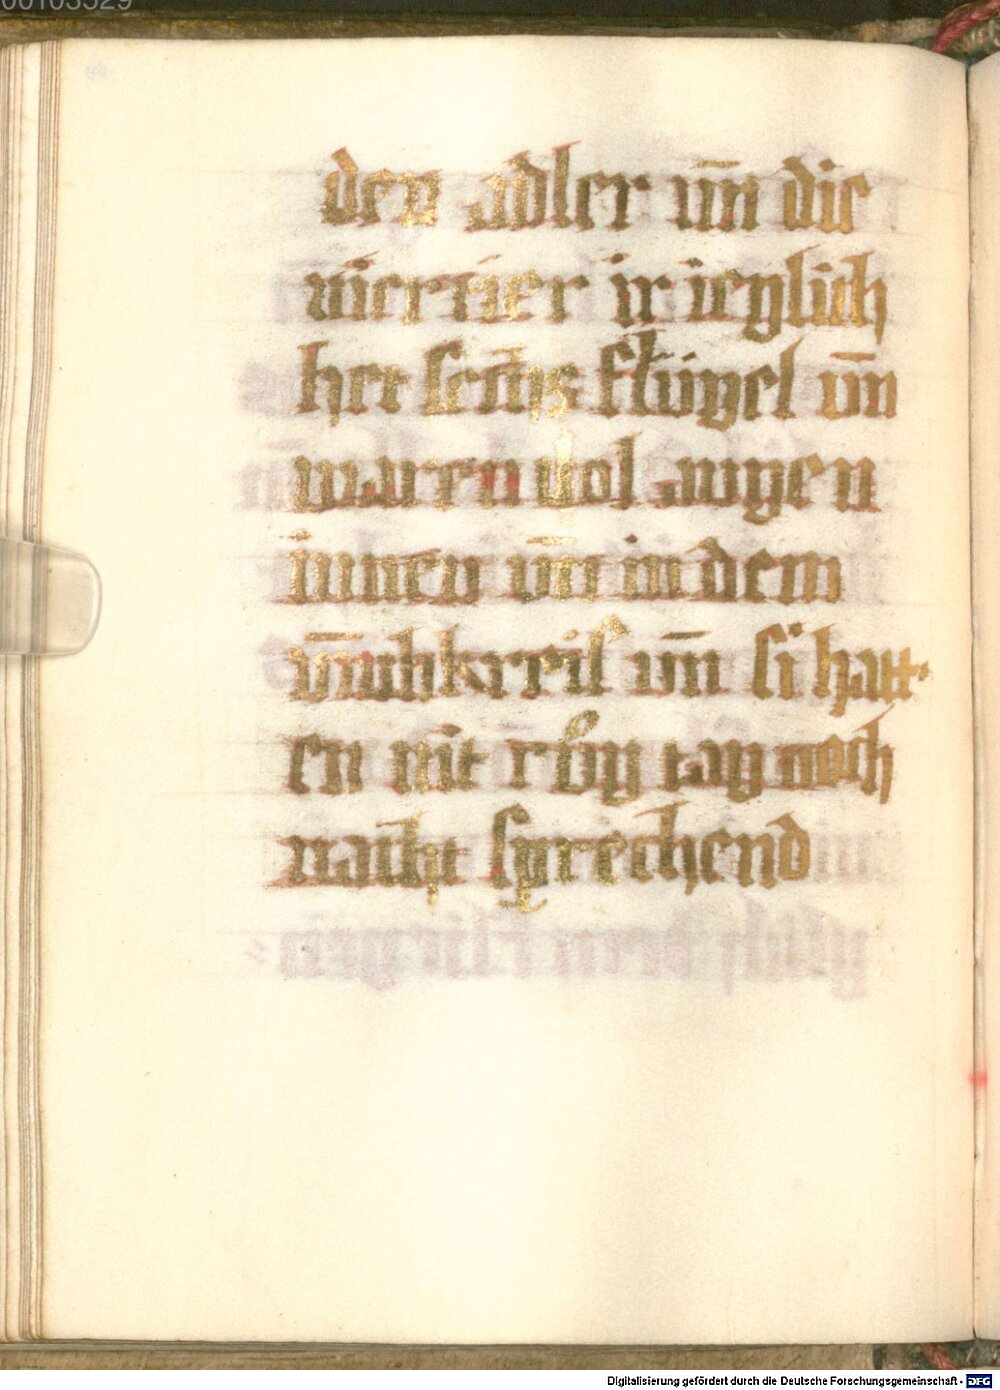 00103529
den adler vn̄ die
vier tier ir ieglich
het sechs flu̇gel vn̄
waren vol augen
innen vn̄ in dem
vm̄bkreis vn̄ si hatt-
en nit růg tag noch
nacht sprechend
Digitalisierung gefördert durch die Deutsche Forschungsgemeinschaft - DFG